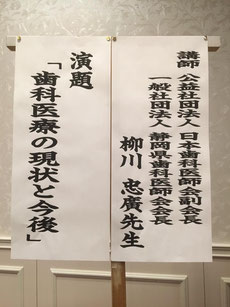 講師 公益社団法人 日本歯科医師会副会長
一般社団法人 静岡県歯科医師会会長
柳川 忠廣先生
演題
「歯科医療の現状と今後」